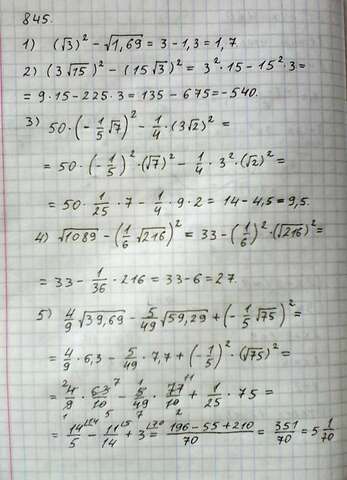 845.
1) (√3)² - √1,69 = 3 - 1,3 = 1,7.
2) (3√15)² - (15√3)² = 3²·15 - 15²·3 =
= 9·15 - 225·3 = 135 - 675 = -540.
3) 50·(-1/5 √7)² - 1/4·(3√2)² =
= 50·(-1/5)²·(√7)² - 1/4·3²·(√2)² =
= 50·1/25·7 - 1/4·9·2 = 14 - 4,5 = 9,5.
4) √1089 - (1/6 √216)² = 33 - (1/6)²·(√216)² =
= 33 - 1/36·216 = 33 - 6 = 27.
5) 4/9 √39,69 - 5/49 √59,29 + (-1/5 √75)² =
= 4/9·6,3 - 5/49·7,7 + (-1/5)²·(√75)² =
= 4/9·63/10 - 5/49·77/10 + 1/25·75 =
= 14/5 - 11/14 + 3 = (196 - 55 + 210)/70 = 351/70 = 5 1/70